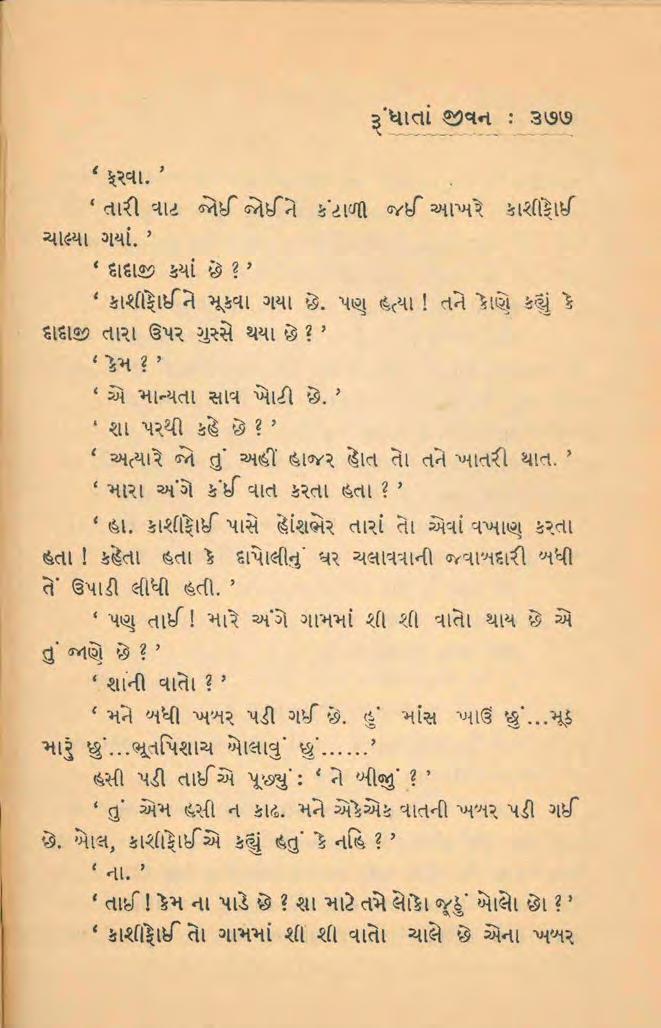 રૂંધાતાં જીવન : ૩૭૭
‘ ફરવા. ’
‘ તારી વાટ જોઈ જોઈને કંટાળી જઈ આખરે કાશીફોઈ
ચાલ્યા ગયાં. ’
‘ દાદાજી ક્યાં છે ? ’
‘ કાશીફોઈને મૂકવા ગયા છે. પણ હત્યા ! તને કોણે કહ્યું કે
દાદાજી તારા ઉપર ગુસ્સે થયા છે ? ’
‘ કેમ ? ’
‘ એ માન્યતા સાવ ખોટી છે. ’
‘ શા પરથી કહે છે ? ’
‘ અત્યારે જો તું અહીં હાજર હોત તો તને ખાતરી થાત. ’
‘ મારા અંગે કંઈ વાત કરતા હતા ? ’
‘ હા. કાશીફોઈ પાસે હોંશભેર તારાં તો એવાં વખાણ કરતા
હતા ! કહેતા હતા કે દાપોલીનું ઘર ચલાવવાની જવાબદારી બધી
તેં ઉપાડી લીધી હતી. ’
‘ પણ તાઈ ! મારે અંગે ગામમાં શી શી વાતો થાય છે એ
તું જાણે છે ? ’
‘ શાની વાતો ? ’
‘ મને બધી ખબર પડી ગઈ છે. હું માંસ ખાઉં છું...મૂઠ
મારું છું...ભૂતપિશાચ બોલાવું છું......’
હસી પડી તાઈએ પૂછ્યું : ‘ ને બીજું ? ’
‘ તું એમ હસી ન કાઢ. મને એકેએક વાતની ખબર પડી ગઈ
છે. બોલ, કાશીફોઈએ કહ્યું હતું કે નહિ ? ’
‘ ના. ’
‘ તાઈ ! કેમ ના પાડે છે ? શા માટે તમે લોકો જૂઠું બોલો છો ? ’
‘ કાશીફોઈ તો ગામમાં શી શી વાતો ચાલે છે એના ખબર